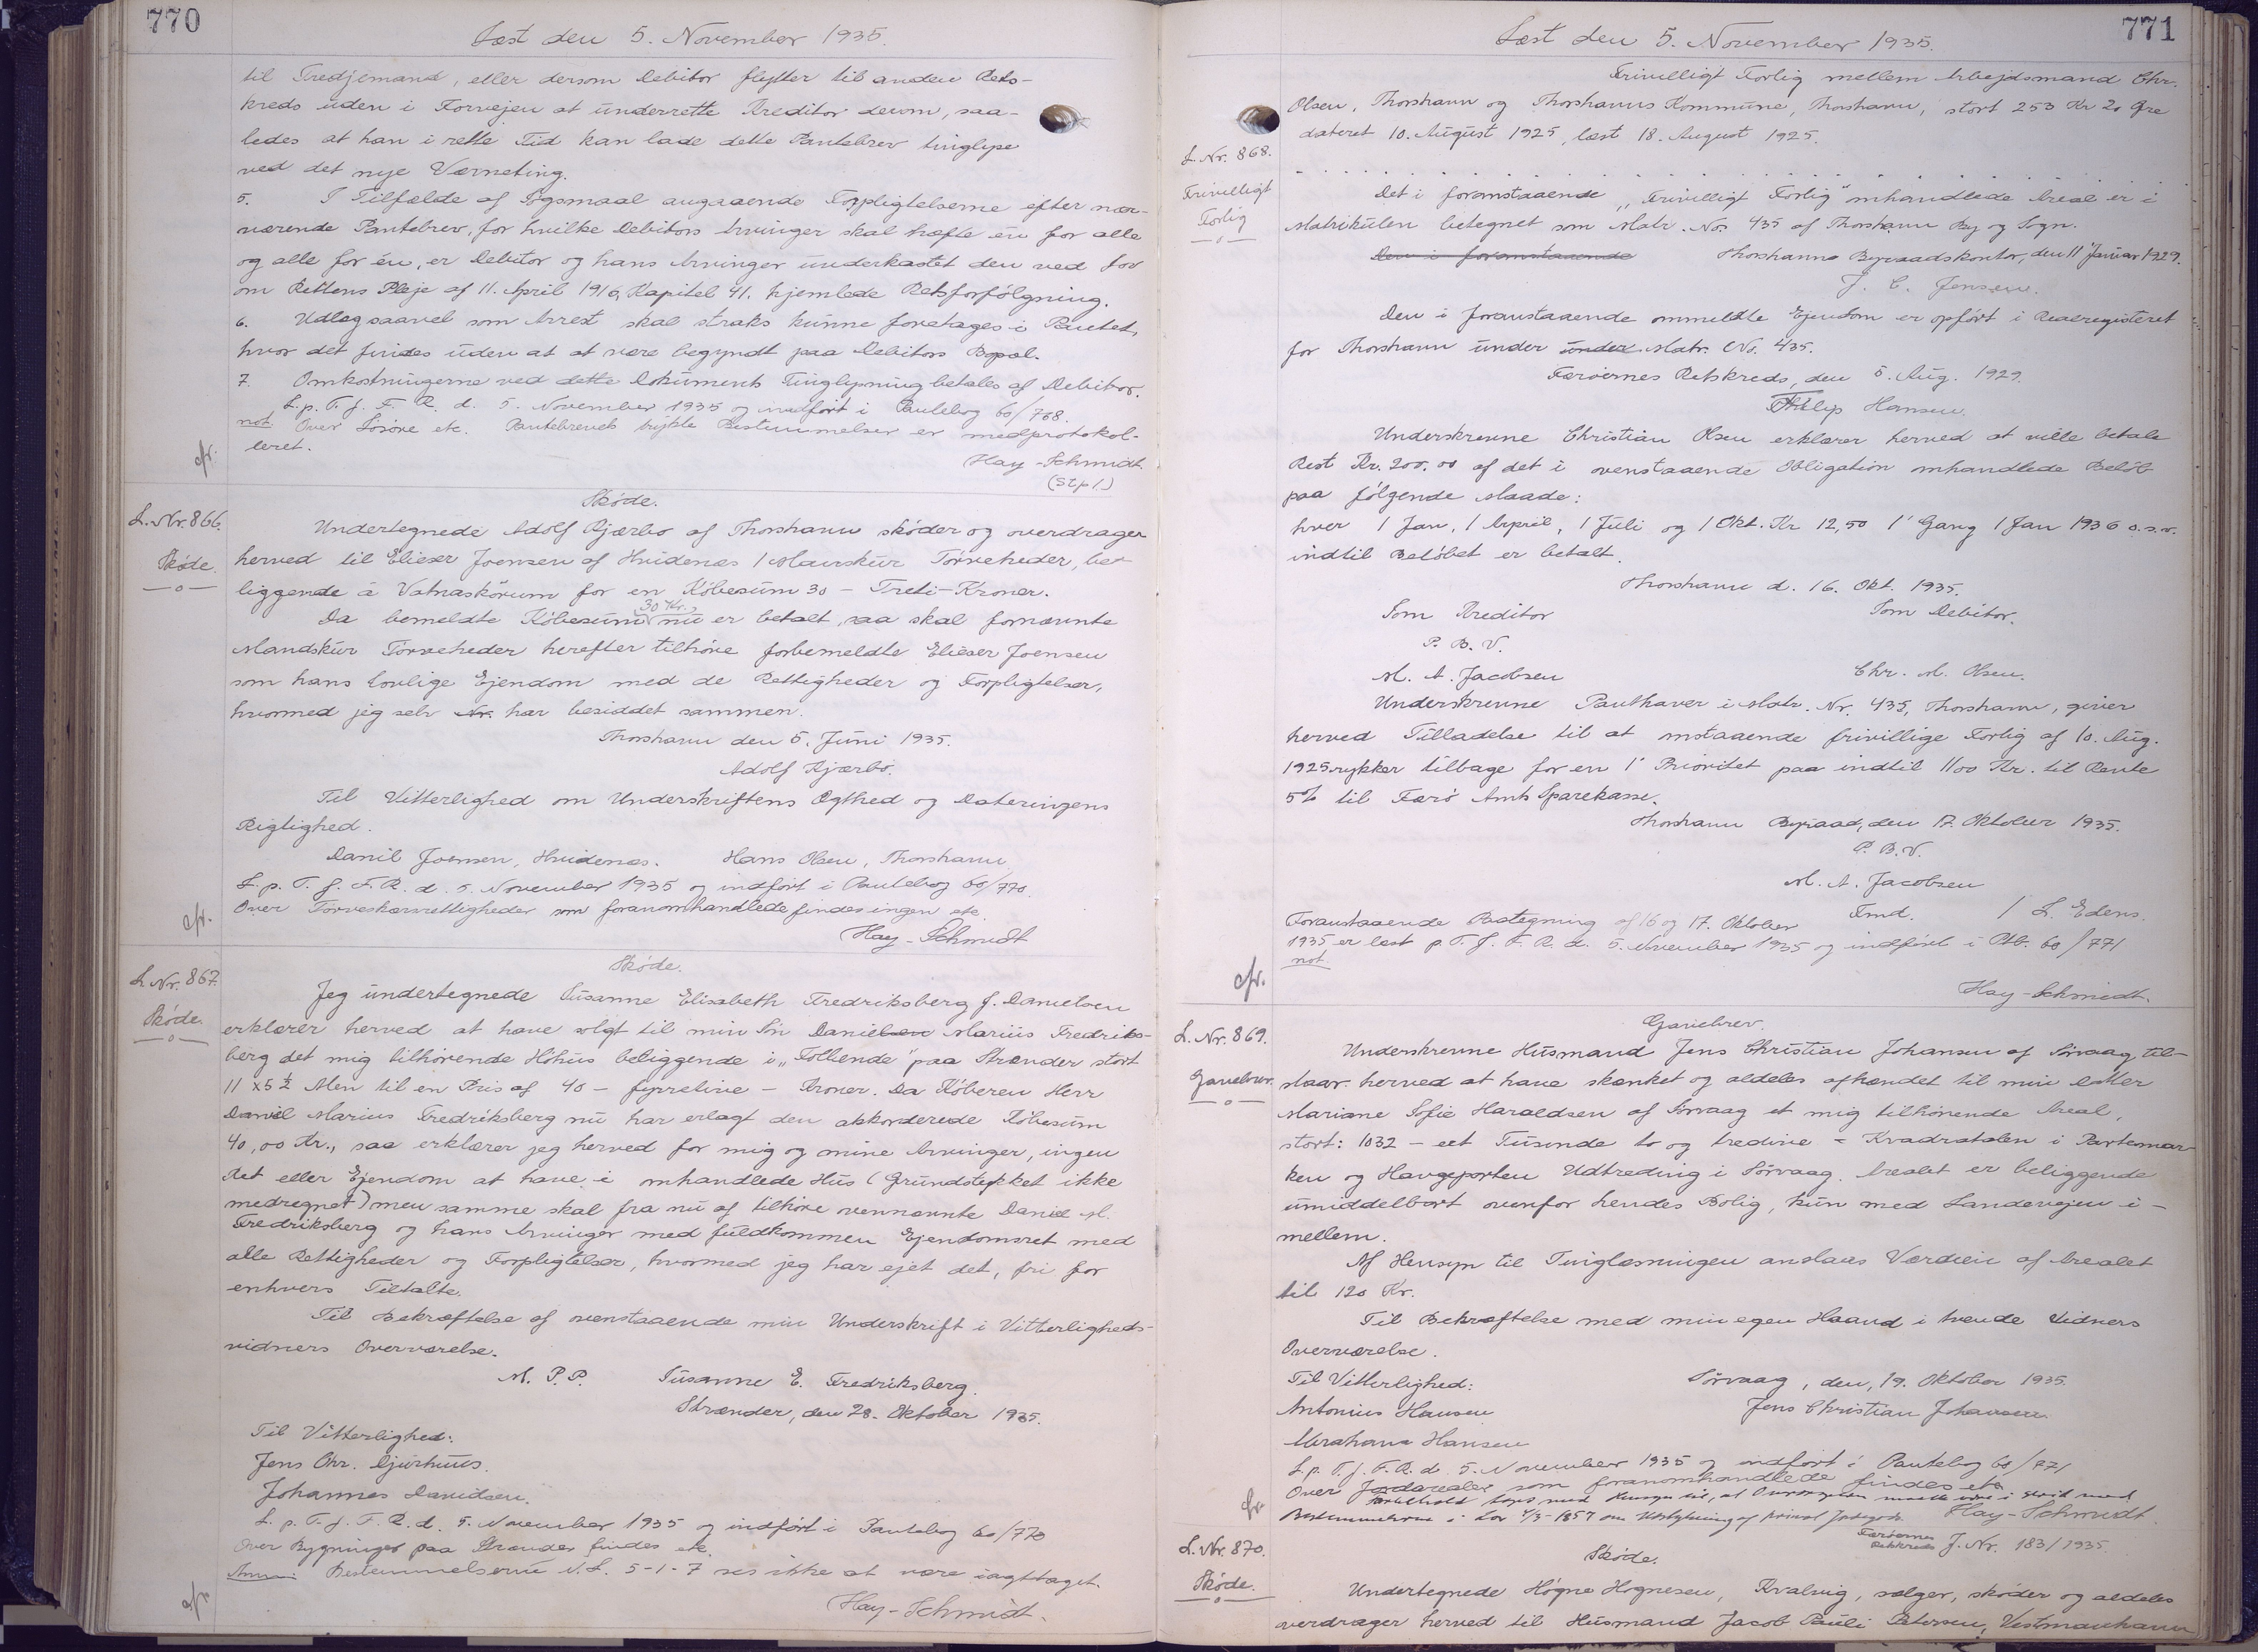 770
Læst den 5. November 1935.
til Tredjemand, eller dersom Debitor flytter til anden Rets-
kreds uden i Forvejen at underrette Kreditor derom, saa-
ledes at han i rette Tid kan lade dette Pantebrev tinglyse
ved det nye Værneting.
5. I Tilfælde af Søgsmaal angaaende Forpligtelserne efter nær-
værende Pantebrev, for hvilke Debitors Arvinger skal hæfte én for alle
og alle for én, er Debitor og hans Arvinger underkastet den ved Lov
om Rettens Pleje af 11. April 1916, Kapitel 41. hjemlede Retsforfølgning.
6. Udlæg saavel som Arrest skal straks kunne foretages i Pantet,
hvor det findes uden at at være begyndt paa Debitors Bopæl.
7. Omkostningerne ved dette Dokuments Tinglysning betales af Debitor.
L. p. T. f. F. R. d. 5. November 1935 og indført i Pantebog 60/768.
not. Over Løsøre etc. Pantebrevets trykte Bestemmelser er medprotokol-
leret.
cfr.
Hay-Schmidt
(Stpl.)
L. Nr. 866.
Skøde.
Skøde.
Undertegnede Adolf Kjærbo af Thorshavn skøder og overdrager
herved til Elieser Joensen af Hvidenæs 1 Manskur Tørveheder, be-
liggende á Vatnaskörum for en Købesum 30 - Treti - Kroner.
Da bemeldte Købesum 30 Kr. nu er betalt, saa skal fornævnte
Mandskur Tørveheder herefter tilhøre forbemeldte Elieser Joensen
som hans lovlige Ejendom med de Rettigheder og Forpligtelser,
hvormed jeg selv Nr. har besiddet sammen.
Thorshavn den 5. Juni 1935.
Adolf Kjærbo.
Til Vitterlighed om Underskriftens Ægthed og Dateringens
Rigtighed.
Danil Joensen, Hvidenæs. Hans Olsen, Thorshavn.
L. p. T. f. F. R. d. 5. November 1935 og indført i Pantebog 60/770.
Over Tørveskærsrettigheder som foranomhandlede findes ingen etc.
cfr.
Hay-Schmidt
L Nr. 867.
Skøde.
Skøde.
Jeg undertegnede Susanne Elisabeth Fredriksberg f. Danielsen
erklærer herved at have solgt til min Søn Danielsen Marius Fredriks-
berg det mig tilhørende Høhus beliggende i "Tollende" paa Strænder stort
11 x 5 ½ Alen til en Pris af 40 - fyrretive - Kroner. Da Køberen Herr
Daniel Marius Fredriksberg nu har erlagt den akkorderede Købesum
40,00 Kr., saa erklærer jeg herved for mig og mine Arvinger, ingen
Ret eller Ejendom at have i omhandlede Hus (Grundstykket ikke
medregnet) men samme skal fra nu af tilhøre ovennævnte Daniel M.
Fredriksberg og hans Arvinger med fuldkommen Ejendomsret med
alle Rettigheder og Forpligtelser, hvormed jeg har ejet det, fri for
enhvers Tiltalte.
Til Bekræftelse af ovenstaaende min Underskrift i Vitterligheds-
vidners Overværelse.
M. P. P. Susanne E. Fredriksberg.
Strænder, den 28. Oktober 1935.
Til Vitterlighed:
Jens Chr. Djurhuus.
Johannes Davidsen.
L. p. T. f. F. R. d. 5. November 1935 og indført i Pantebog 60/770
Over Bygninger paa Strænder findes etc.
Anm: Bestemmelserne N.L. 5-1-7 ses ikke at være iagttaget.
cfr.
Hay-Schmidt.
771
Læst den 5. November 1935.
Frivilligt Forlig mellem Arbejdsmand Chr.
Olsen, Thorshavn og Thorshavns Kommune, Thorshavn, stort 253 Kr 20 Øre
dateret 10. August 1925, læst 18. August 1925.
L. Nr. 868.
Frivilligt
Forlig
Det i foranstaaende "Frivilligt Forlig" omhandlede Areal er i
Matrikulen betegnet som Matr. No. 435 af Thorshavn By og Sogn.
Den i foranstaaende Thorshavns Byraadskontor, den 11' Januar 1929.
J. C. Jensen.
Den i foranstaaende ommeldte Ejendom er opført i Realregisteret
for Thorshavn under under Matr. No. 435.
Færøernes Retskreds, den 5. Aug. 1929.
Philip Hansen.
Underskrevne Christian Olsen erklærer herved at ville betale
Rest Kr. 200,00 af det i ovenstaaende Obligation omhandlede Beløb
paa følgende Maade:
hver 1 Jan, 1 April, 1 Juli og 1 Okt. Kr 12,50 1' Gang 1 Jan 1936 o.s.v.
indtil Beløbet er betalt.
Thorshavn d. 16. Okt. 1935.
Som Kreditor Som Debitor.
P. B. V.
M. A. Jacobsen Chr. M. Olsen.
Underskrevne Panthaver i Matr. Nr. 435, Thorshavn, giver
herved Tilladelse til at omstaaende frivillige Forlig af 10. Aug.
1925 rykker tilbage for en 1' Prioritet paa indtil 1100 Kr. til Rente
5% til Færø Amts Sparekasse.
Thorshavn Byraad, den 17. Oktober 1935.
P. B. V.
M. A. Jacobsen
Fmd. / L. Edens.
Foranstaaende Paategning af 16 og 17. Oktober
1935 er læst p. T. f. F. R. d. 5. November 1935 og indført i Ptb. 60/771
not.
cfr.
Hay-Schmidt.
L. Nr. 869.
Gavebrev.
Gavebrev.
Underskrevne Husmand Jens Christian Johansen af Sørvaag, til-
staar herved at have skænket og aldeles afhændet til min Datter
Mariane Sofie Haraldsen af Sørvaag et mig tilhørende Areal,
stort: 1032 - eet Tusende to og tredive - Kvadratalen i Partemar-
ken og Havgeporten Udtreding i Sørvaag. Arealet er beliggende
umiddelbart ovenfor hendes Bolig, kun med Landevejen i-
mellem.
Af Hensyn til Tinglæsningen anslaas Værdien af Arealet
til 120 Kr.
Til Bekræftelse med min egen Haand i tvende Vidners
Overværelse.
Til Vitterlighed: Sørvaag, den, 19. Oktober 1935.
Antonius Hansen Jens Christian Johansen.
Abraham Hansen
L. p. T. f. F. R. d. 5. November 1935 og indført i Pantebog 60/771
Over Jordarealer som foranomhandlede findes etc.
Forbehold tages med Hensyn til, at Overdragelsen maatte være i Strid med
Bestemmelserne i Lov 4/3-1857 om Udstykning af privat Jordegods.
cfr
Hay-Schmidt.
Færøernes
Retskreds J. Nr. 183/1935.
L. Nr. 870.
Skøde.
Skøde.
Undertegnede Høgne Hognesen, Kvalvig, sælger, skøder og aldeles
overdrager herved til Husmand Jacob Pauli Petersen, Vestmanhavn